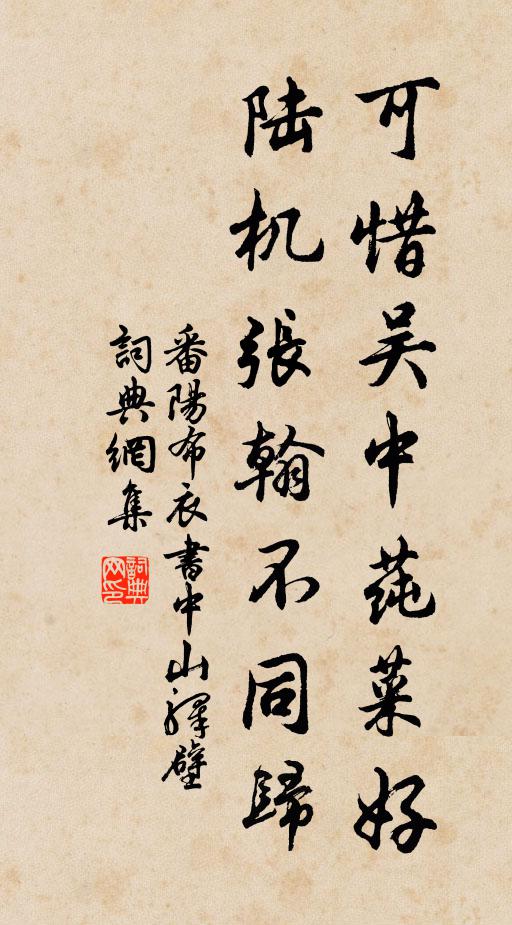 可惜吴中莼菜好
陆机張翰不同歸
番陽布衣書中山驛壁
詞典網集
詞典网印